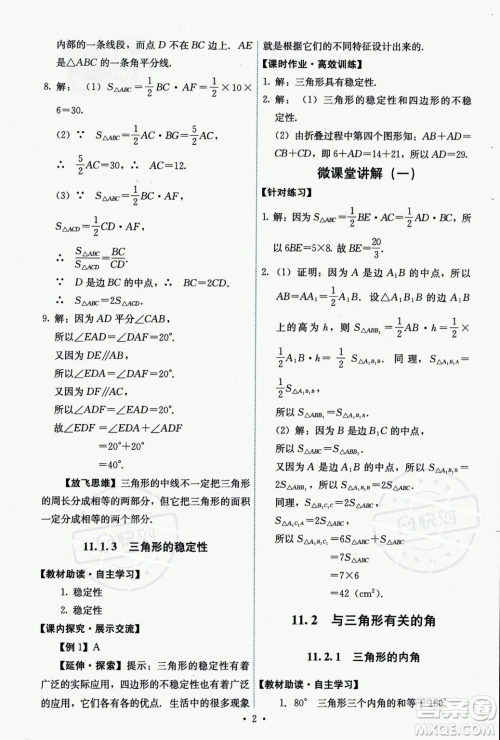 内部的一条线段，而点 D 不是边 BC 的中点. AE
是△ABC 的一条角平分线.
8. 解：(1) S△ABC = 1/2 BC · AF = 1/2 × 10 ×
6=30.
(2) ∵ S△ABC = 1/2 BC · AF = 60,
∴ 1/2 AF=30, ∴ AF=12.
(3) ∵ S△ABC = 1/2 BC · AF,
S△ACD = 1/2 CD · AF,
∴ S△ABC/S△ACD = BC/CD.
∵ D 是边 BC 的中点, ∴ BC=2CD.
∴ S△ABC=2S△ACD.
9. 解：因为 AD 平分∠CAB,
所以∠EAD=∠DAF=20°.
又因为 DE∥AB,
所以∠EDA=∠DAF=20°.
又因为 DF∥AC,
所以∠ADF=∠EAD=20°.
故∠EDF=∠EDA+∠ADF
=20°+20°
=40°.
【放飞思维】三角形的中线不一定把三角形
的周长分成相等的两部分，但它把三角形的面积
一定分成相等的两部分.
11.1.3 三角形的稳定性
【教材助读·自主学习】
1. 稳定性
2. 稳定性
【课内探究·展示交流】
【例 1】A
【延伸·探索】三角形的稳定性有广泛
的实际应用，四边形的不稳定性也有广泛的
应用. 生活中的例子很多，人们将会根据实际
就是根据它们的不同特征设计出来的.
【课时作业·高效训练】
1. 解：三角形具有稳定性.
2. 解：(1) 三角形的稳定性和四边形的不稳
定性.
(2) 由折叠过程中第四个图形知：AB+AD=
CB+CD，即 6+AD=14+21，所以 AD=29.
微课堂讲解 (一)
【针对练习】
1. 解：因为 S△ABC = 1/2 BE · AC = 1/2 BC · AD,
所以 6BE=5×8. 故 BE=20/3.
2. (1) 证明：因为 A 是边 A₁B 的中点，所以
AB=AA₁=1/2 A₁B. 设△A₁B₁B 的边 A₁B
上的高为 h，则 S△ABB₁ = 1/2 AB · h = 1/2 ×
1/2 A₁B · h = 1/2 S△A₁B₁B. 同理，S△ABC =
所以 S△A₁B₁B=2S△ABC.
(2) 解：因为 B 是边 B₁C 的中点，
又因为
同理：
=7S△ABC
=7×6
=42 (cm²).
11.2 与三角形有关的角
11.2.1 三角形的内角
【教材助读·自主学习】
1. 80° 三角形三个内角的和等于 180°
· 2 ·
答案圈